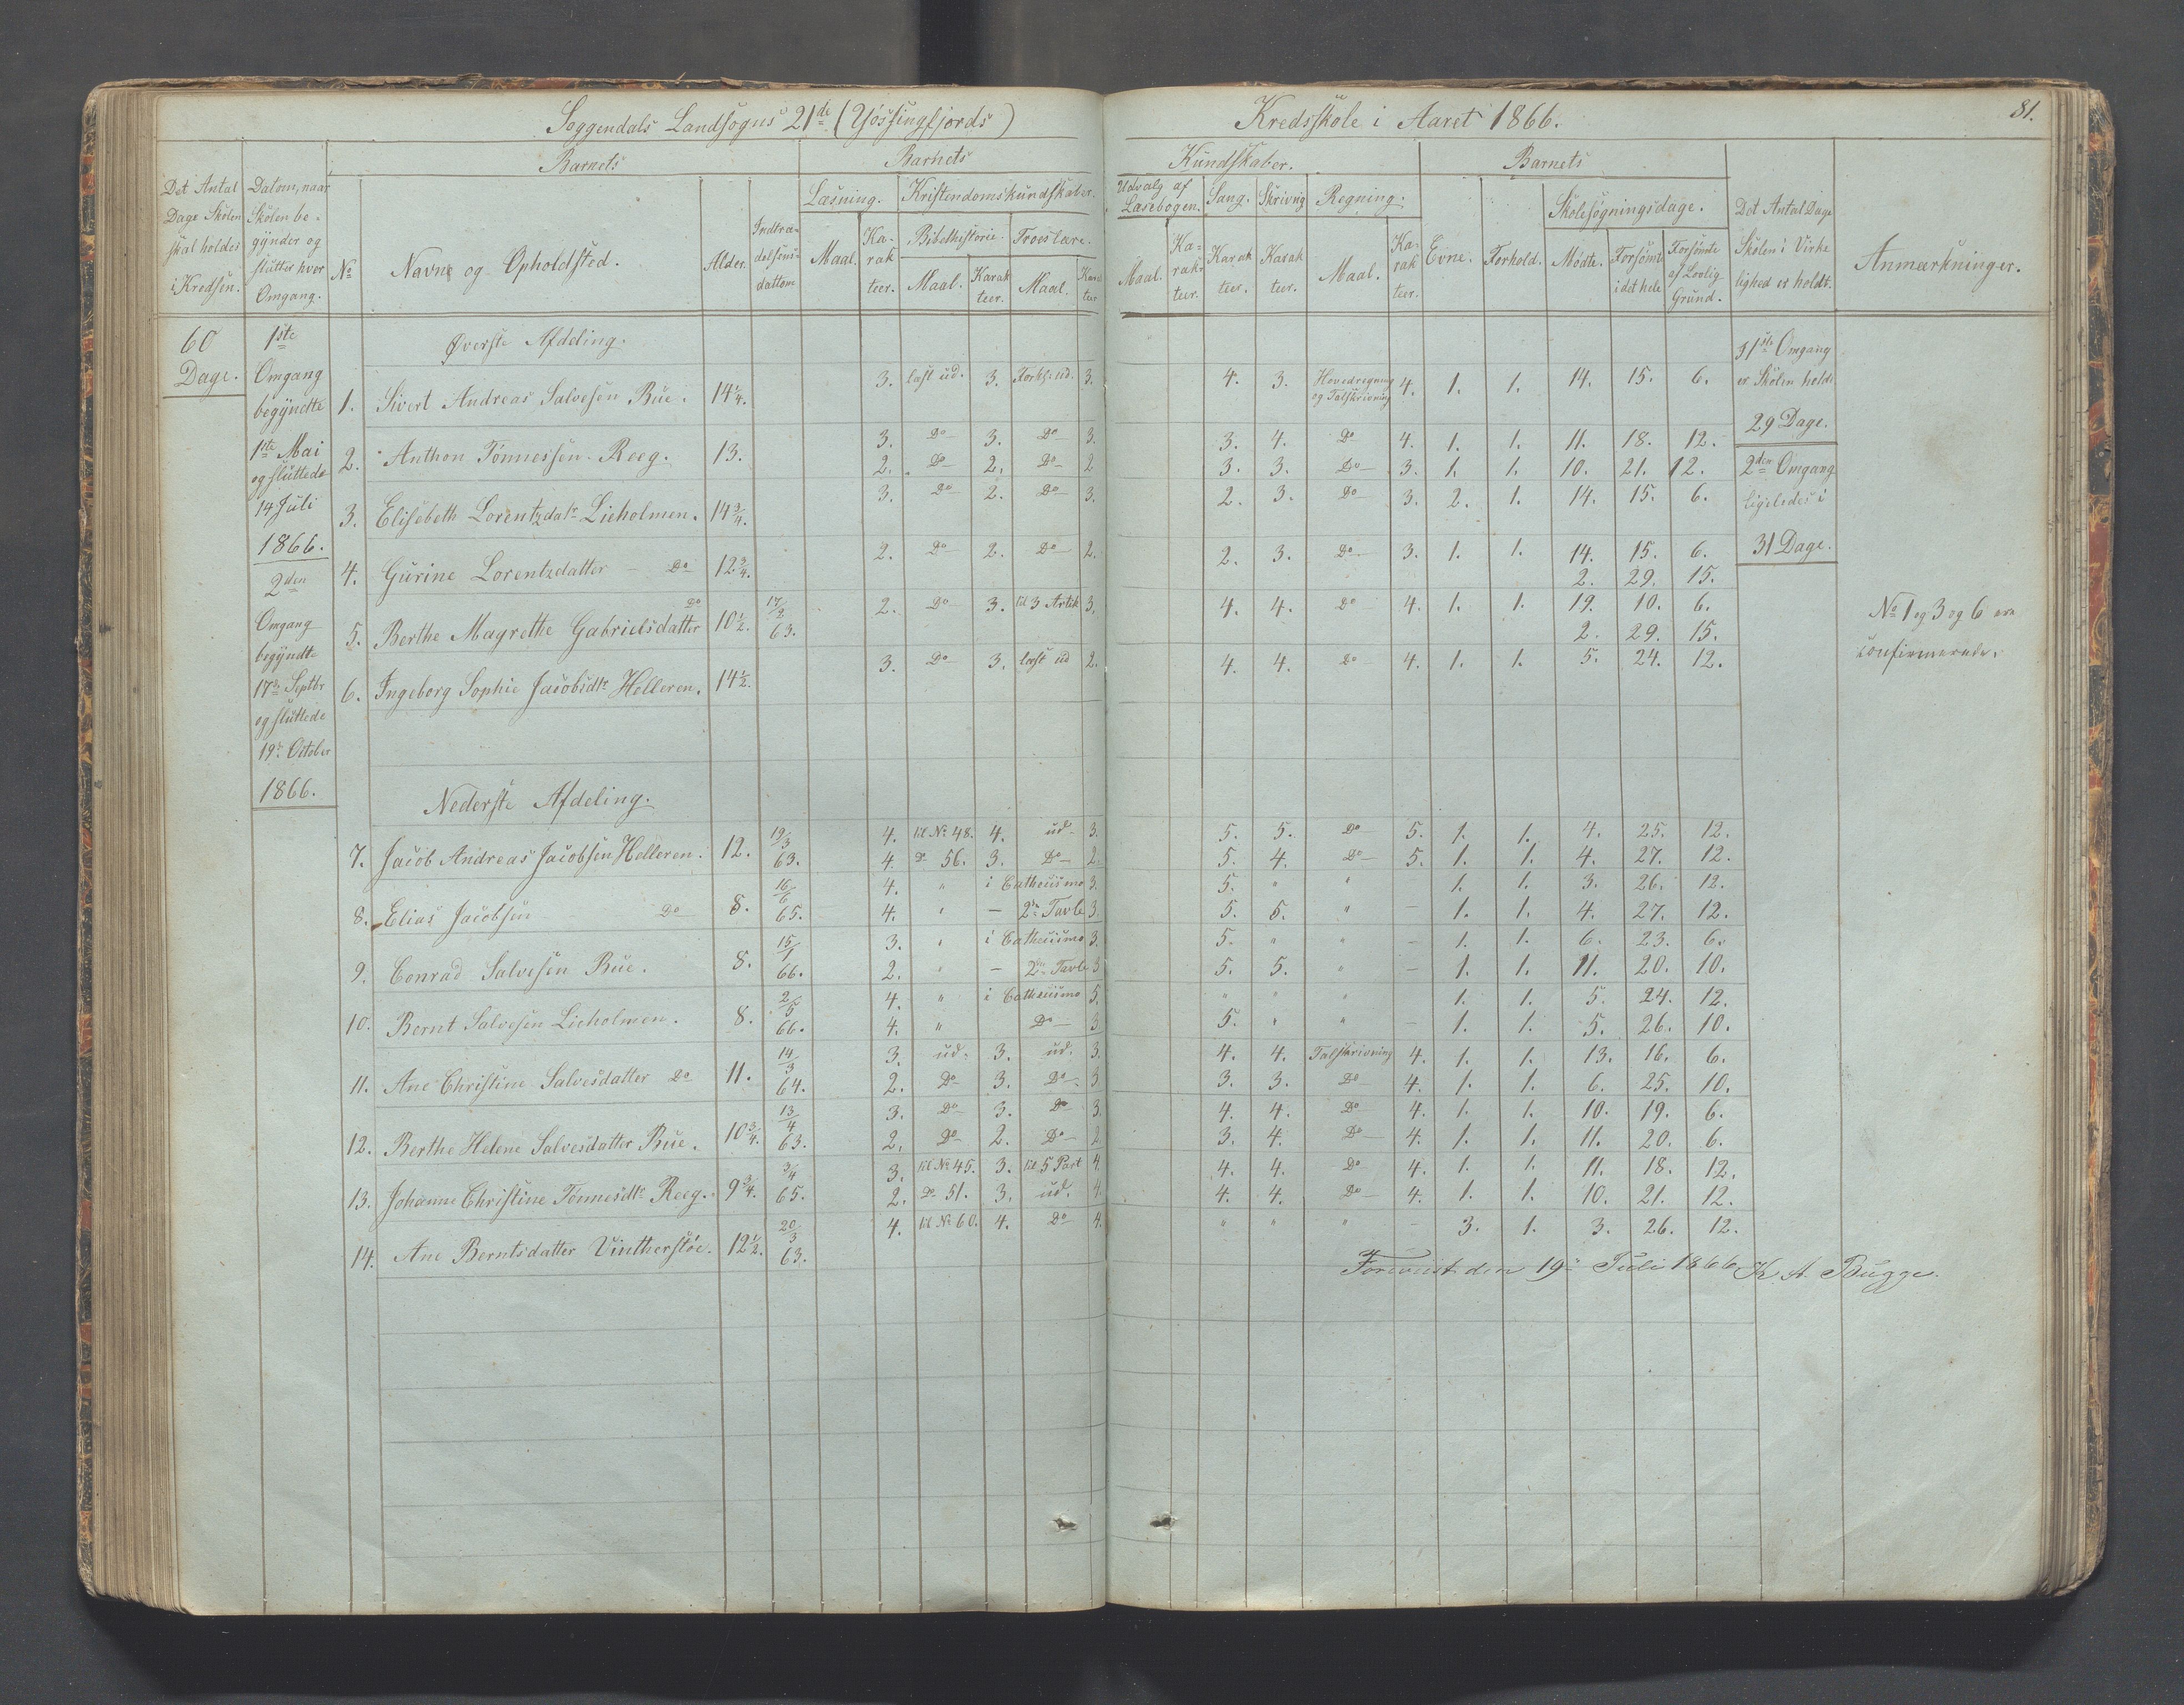 Soggendals Landsogns 21de (Jøssingfjords) Kredsskole i Aaret 1866. 81.
Barnets Barnets Kundskaber. Barnets
Det Antal Dage Skolen skal holdes i Kredsen.
Datum, naar Skolen begynder og slutter hver Omgang.
No
Navne og Opholdsted.
Alder.
Indtrædelsensdattom
Læsning. Maal. Karakteer.
Kristendomskundskaber.
Bibelhistorie. Maal. Karakteer.
Troeslære. Maal. Karakteer
Udvalg af Læsebogen. Maal. Karakteer.
Sang. Karakteer.
Skrivng Karakteer.
Regning. Maal. Karakteer.
Evne. Forhold.
Skolesøgningsdage.
Mødte. Forsømt i det hele Forsømte af Lovlig Grund.
Det Antal Dage Skolen i Virkelighed er holdt.
Anmærkninger.
60 Dage.
1ste Omgang begyndte 1ste Mai og sluttede 14 Juli 1866.
2den Omgang begyndte 17de Septbr og sluttede 19de October 1866.
Øverste Afdeling.
1. Sivert Andreas Salvesen Rue. 14 1/4. 3. læst ud. 3. Forkl. ud. 3. 4. 3. Hovedregning og Talskrivning 4. 1. 1. 14. 15. 6.
2. Anthon Tönnessen Reeg. 13. 3. Do 3. Do 3. 3. 4. Do 4. 1. 1. 11. 18. 12.
2. Do 2. Do 2 3. 3. Do 3. 1. 1. 10. 21. 12.
3. Elisebeth Lorentzdatr Lieholmen. 14 3/4. 3. Do 2. Do 3. 2. 3. Do 3. 2. 1. 14. 15. 6.
4. Gurine Lorentzdatter Do 12 3/4. 2. Do 2. Do 2. 2. 3. Do 3. 1. 1. 14. 15. 6.
2. 29. 15.
5. Berthe Magrethe Gabrielsdatter Do 10 1/2. 17/2 63. 2. Do 3. til 3 Artik 3. 4. 4. Do 4. 1. 1. 19. 10. 6.
2. 29. 15.
6. Ingeborg Sophie Jacobsdtr Helleren. 14 1/2. 3. Do 3. læst ud 2. 4. 4. Do 4. 1. 1. 5. 24. 12.
Nederste Afdeling.
7. Jacob Andreas Jacobsen Helleren. 12. 19/3 63. 4. til No 48. 4. ud. 3. 5. 5. Do 5. 1. 1. 4. 25. 12.
4. Do 56. 3. Do 2. 5. 4. Do 5. 1. 1. 4. 27. 12.
8. Elias Jacobsen Do 8. 16/6 65. 4. " i Cathecismo 3. 5. " " 1. 1. 3. 26. 12.
4. " — 2den Tavle 3. 5. 5. " – 1. 1. 4. 27. 12.
9. Conrad Salvesen Rue. 8. 15/1 66. 3. " i Cathecismo 3. 5. " " – 1. 1. 6. 23. 6.
2. " — 2den Tavle 3 5. 5. " – 1. 1. 11. 20. 10.
10. Bernt Salvesen Lieholmen. 8. 2/5 66. 4. " i Cathecismo 5. " " " 1. 1. 5. 24. 12.
4. " Do 3 5. " " – 1. 1. 5. 26. 10.
11. Ane Christine Salvesdatter Do 11. 14/3 64. 3. ud. 3. ud. 3. 4. 4. Talskrivning 4. 1. 1. 13. 16. 6.
2. Do 3. Do 3 3. 3. Do 4. 1. 1. 6. 25. 10.
12. Berthe Helene Salvesdatter Rue. 10 3/4. 13/4 63. 3. Do 3. Do 3. 4. 4. Do 4. 1. 1. 10. 19. 6.
2. Do 2. Do 2 3. 4. Do 4. 1. 1. 11. 20. 6.
13. Johanne Christine Tönnesdtr Reeg. 9 3/4. 3/4 65. 3. til No 45. 3. til 5 Part 4. 4. 4. Do 4. 1. 1. 11. 18. 12.
2. Do 51. 3. ud. 4. 4. 4. Do 4. 1. 1. 10. 21. 12.
14. Ane Berntsdatter Vintherstöe. 12 1/2. 20/3 63. 4. til No 60. 4. Do 4. " " " – 3. 1. 3. 26. 12.
1ste Omgang er Skolen holdt 29 Dage.
2den Omgang ligeledes i 31 Dage.
No 1 og 3 og 6 ere confirmerede.
Foreviist den 19de Juli 1866 K. A. Bugge.